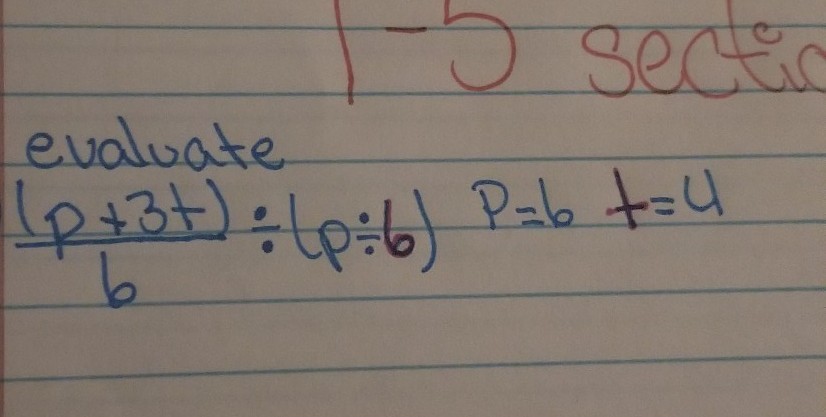 1-5 sectio
evaluate
(p+3t)/6 ÷ (p÷6) P=6 t=4